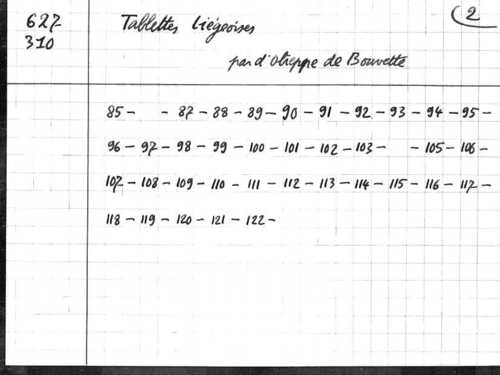 627
310
Tablettes Liégeoises
2
par d'Otreppe de Bouvette
85 - - 87 - 88 - 89 - 90 - 91 - 92 - 93 - 94 - 95 -
96 - 97 - 98 - 99 - 100 - 101 - 102 - 103 - - 105 - 106 -
107 - 108 - 109 - 110 - 111 - 112 - 113 - 114 - 115 - 116 - 117 -
118 - 119 - 120 - 121 - 122 -